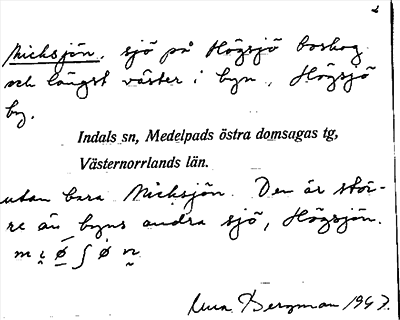 Micksjön. sjö på Högsjö boskog
och längst väster i byn, Högsjö
by.
Indals sn, Medelpads östra domsagas tg,
Västernorrlands län.
utan bara Micksjön. Den är stör-
re än byns andra sjö, Högsjön.
Bergman 1947.